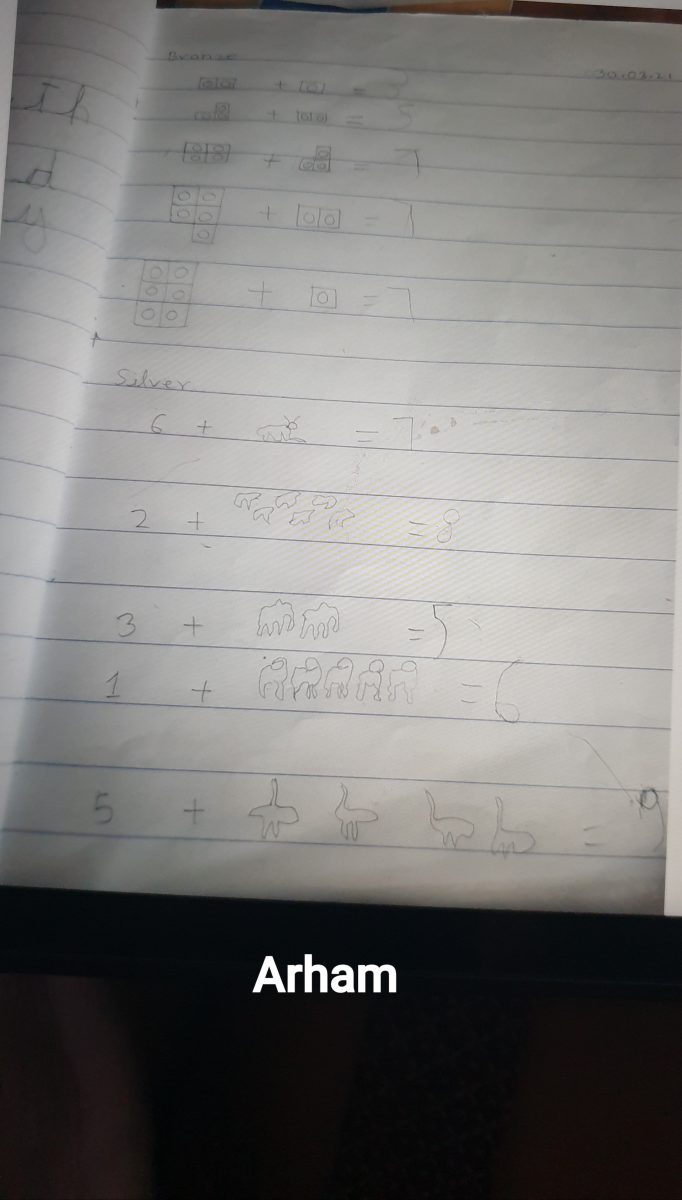 Bronze
30.03.21
+ = 3
+ = 5
+ = 7
+ = 7
+ = 7
Silver
6 + = 7
2 + = 8
3 + = 5
1 + = 6
5 + = 9
Arham